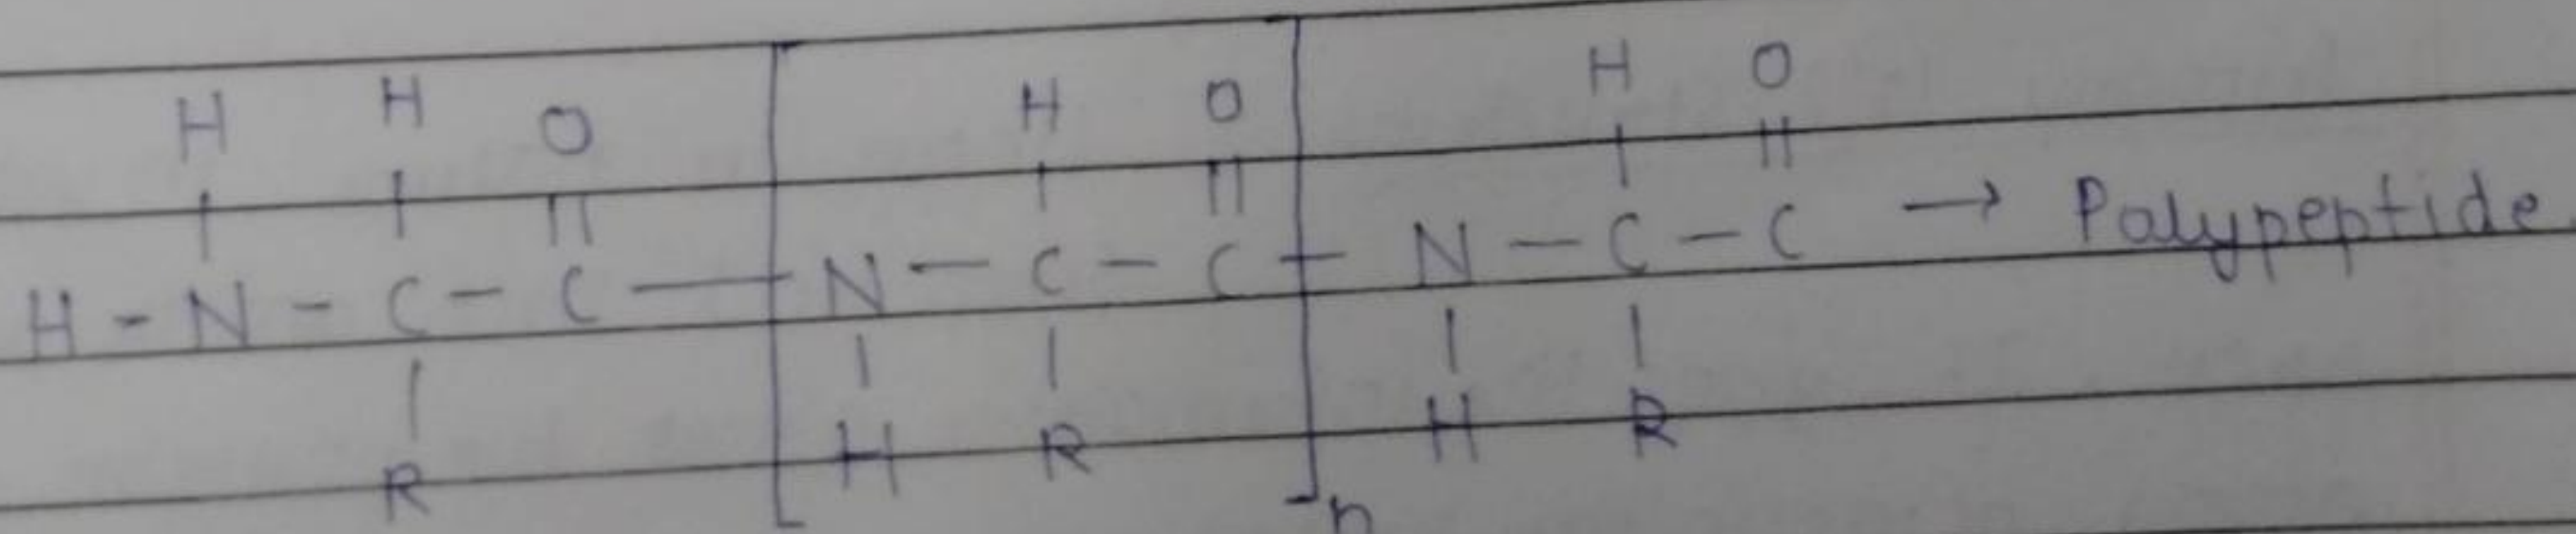 H H O H O H O
| | || | || | ||
H - N - C - C — [ N - C - C ] - N - C - C → Polypeptide
| | | | |
R H R H R
n